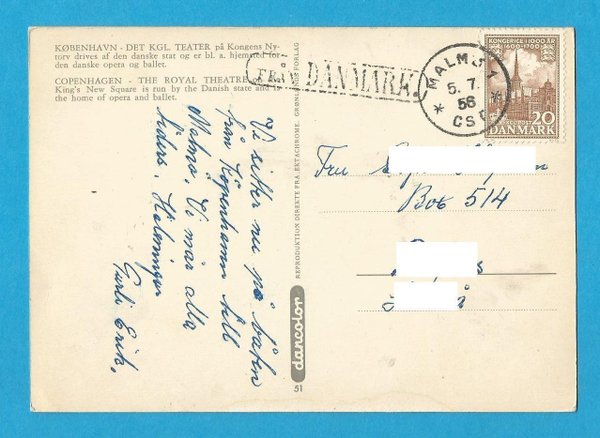 KØBENHAVN - DET KGL. TEATER på Kongens Ny-
torv drives af den danske stat og er bl. a. hjemsted for
den danske opera og ballet.
COPENHAGEN - THE ROYAL THEATRE
King's New Square is run by the Danish state and is
the home of opera and ballet.
FRÅN DANMARK
MALMÖ 1
5. 7.
56
KONGERIGE I 1000 ÅR
1600-1700
20
DANMARK
Vi sitter nu på båten
från Köpenhamn till
Malmö. Vi mår alla
Hälsningar
Erik.
REPRODUKTION DIREKTE FRA EKTACHROME. GRØNLUNDS FORLAG
dancolor
51
Fru
Box 514